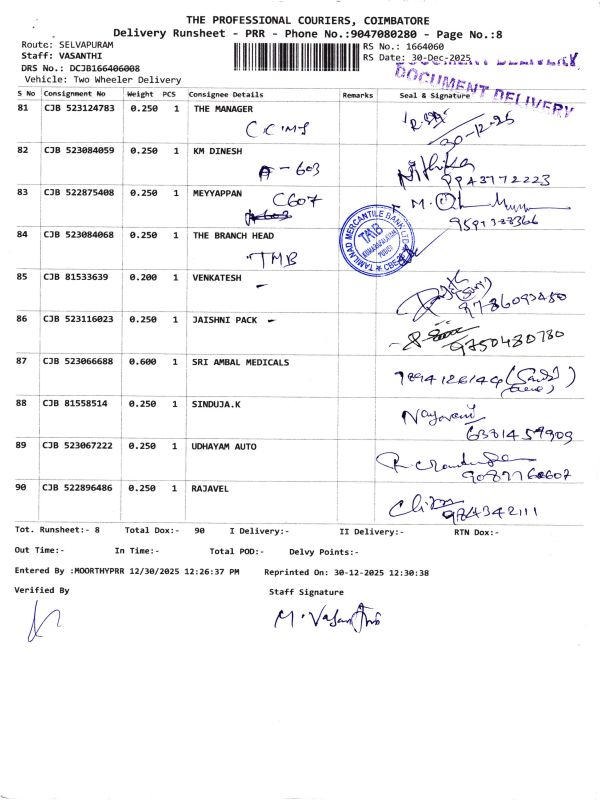 THE PROFESSIONAL COURIERS, COIMBATORE
Delivery Runsheet - PRR - Phone No.:9047080280 - Page No.:8
Route: SELVAPURAM
RS No.: 1664060
Staff: VASANTHI
RS Date: 30-Dec-2025
DRS No.: DCJB166406008
Vehicle: Two Wheeler Delivery
DOCUMENT DELIVERY
S No Consignment No Weight PCS Consignee Details Remarks Seal & Signature
81 CJB 523124783 0.250 1 THE MANAGER
CCIMS
30-12-25
82 CJB 523084059 0.250 1 KM DINESH
A-603
Nithika
9943772223
83 CJB 522875408 0.250 1 MEYYAPPAN
C607
A603
9597388366
84 CJB 523084068 0.250 1 THE BRANCH HEAD
TMB
TAMILNAD MERCANTILE BANK LTD
TMB
85 CJB 81533639 0.200 1 VENKATESH
9786093480
86 CJB 523116023 0.250 1 JAISHNI PACK
9750480780
87 CJB 523066688 0.600 1 SRI AMBAL MEDICALS
88 CJB 81558514 0.250 1 SINDUJA.K
6381457909
89 CJB 523067222 0.250 1 UDHAYAM AUTO
90 CJB 522896486 0.250 1 RAJAVEL
984342111
Tot. Runsheet:- 8 Total Dox:- 90 I Delivery:- II Delivery:- RTN Dox:-
Out Time:- In Time:- Total POD:- Delvy Points:-
Entered By :MOORTHYPRR 12/30/2025 12:26:37 PM Reprinted On: 30-12-2025 12:30:38
Verified By Staff Signature
M. Vasanthi